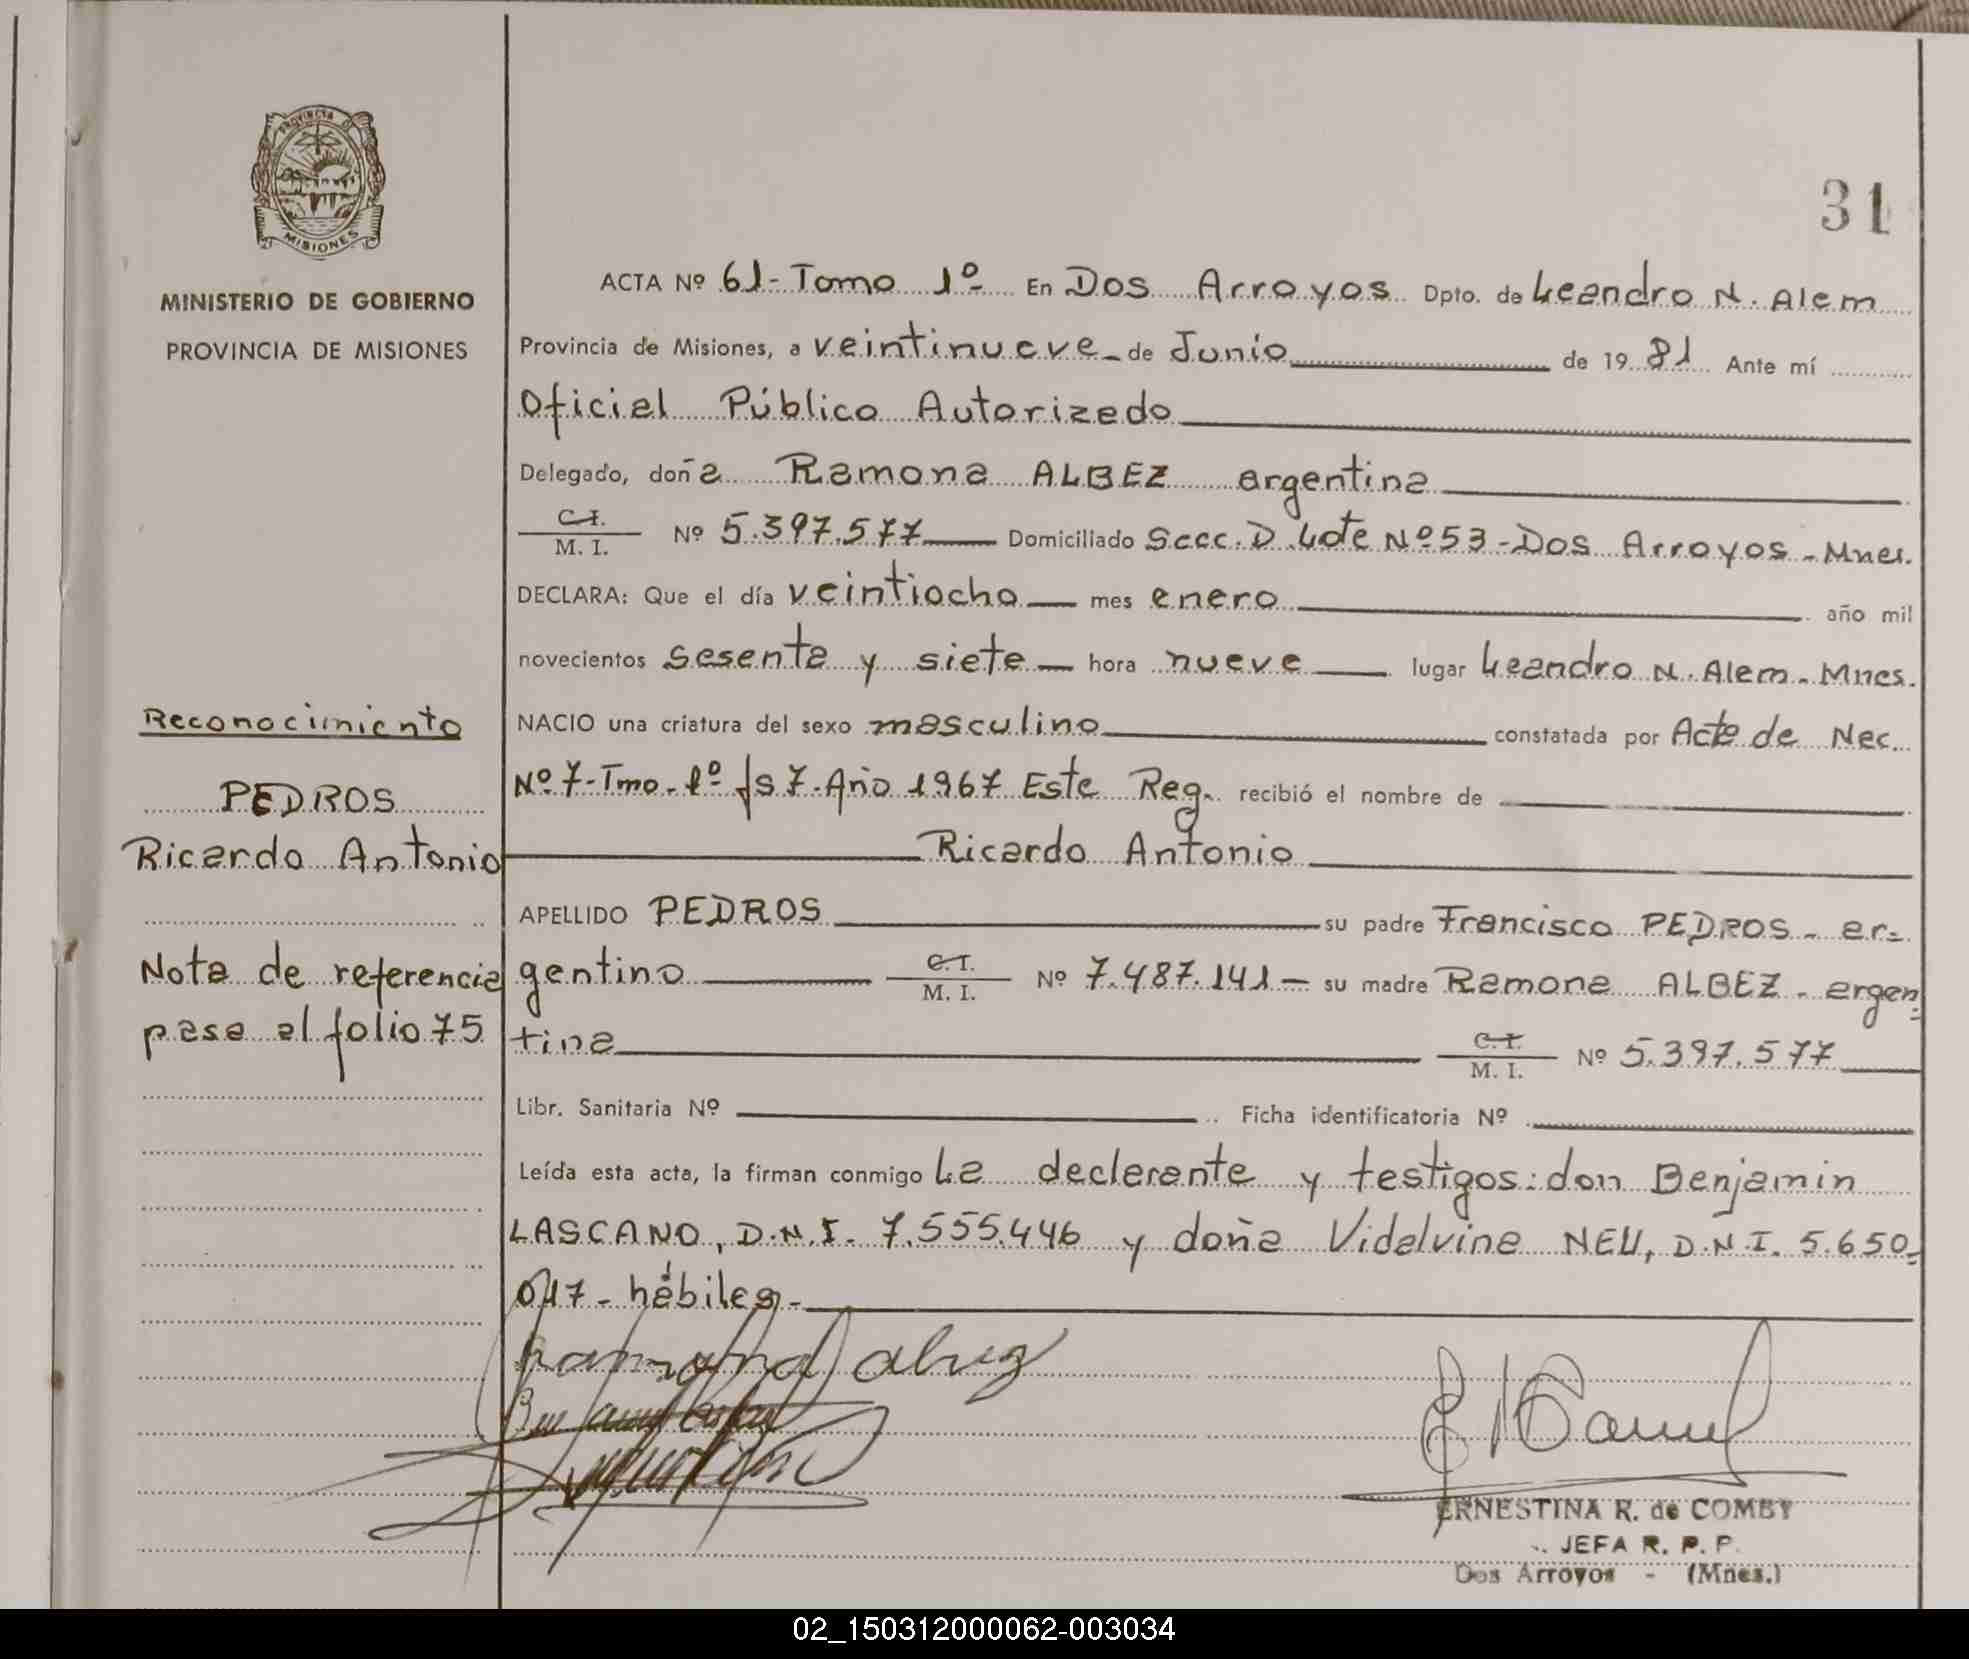 PROVINCIA DE
MISIONES
MINISTERIO DE GOBIERNO
PROVINCIA DE MISIONES
31
ACTA Nº 61- Tomo 1º En Dos Arroyos Dpto. de Leandro N. Alem
Provincia de Misiones, a veintinueve - de Junio de 19 81 Ante mí
Oficial Público Autorizado
Delegado, doña Ramona ALBEZ argentina
C.I.
M. I. Nº 5.397.577 Domiciliado Secc. D. Lote Nº 53 - Dos Arroyos - Mnes.
DECLARA: Que el día veintiocho mes enero año mil
novecientos sesenta y siete - hora nueve lugar Leandro N. Alem - Mnes.
Reconocimiento
NACIO una criatura del sexo masculino constatada por Acta de Nac.
PEDROS
Nº 7 - Tmo. 1º fs 7 - Año 1967 Este Reg. recibió el nombre de
Ricardo Antonio
Ricardo Antonio
APELLIDO PEDROS su padre Francisco PEDROS - ar-
Nota de referencia
gentino C.I.
M. I. Nº 7.487.141 - su madre Ramona ALBEZ - argen-
pasa al folio 75
tina C.I.
M. I. Nº 5.397.577
Libr. Sanitaria Nº Ficha identificatoria Nº
Leída esta acta, la firman conmigo La declarante y testigos: don Benjamin
LASCANO, D.N.I. 7.555.446 y doña Vidalvina NEU, D.N.I. 5.650-
017 - hábiles -
ERNESTINA R. de COMBY
JEFA R. P. P.
Dos Arroyos - (Mnes.)
02_150312000062-003034